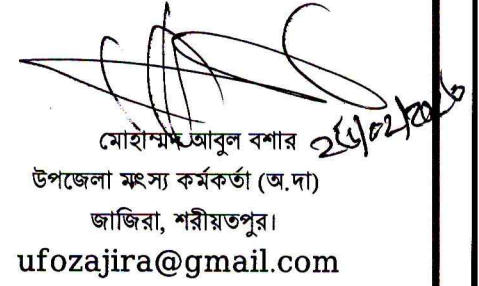 মোহাম্মদ আবুল বশার
উপজেলা মৎস্য কর্মকর্তা (অ.দা)
জাজিরা, শরীয়তপুর।
ufozajira@gmail.com